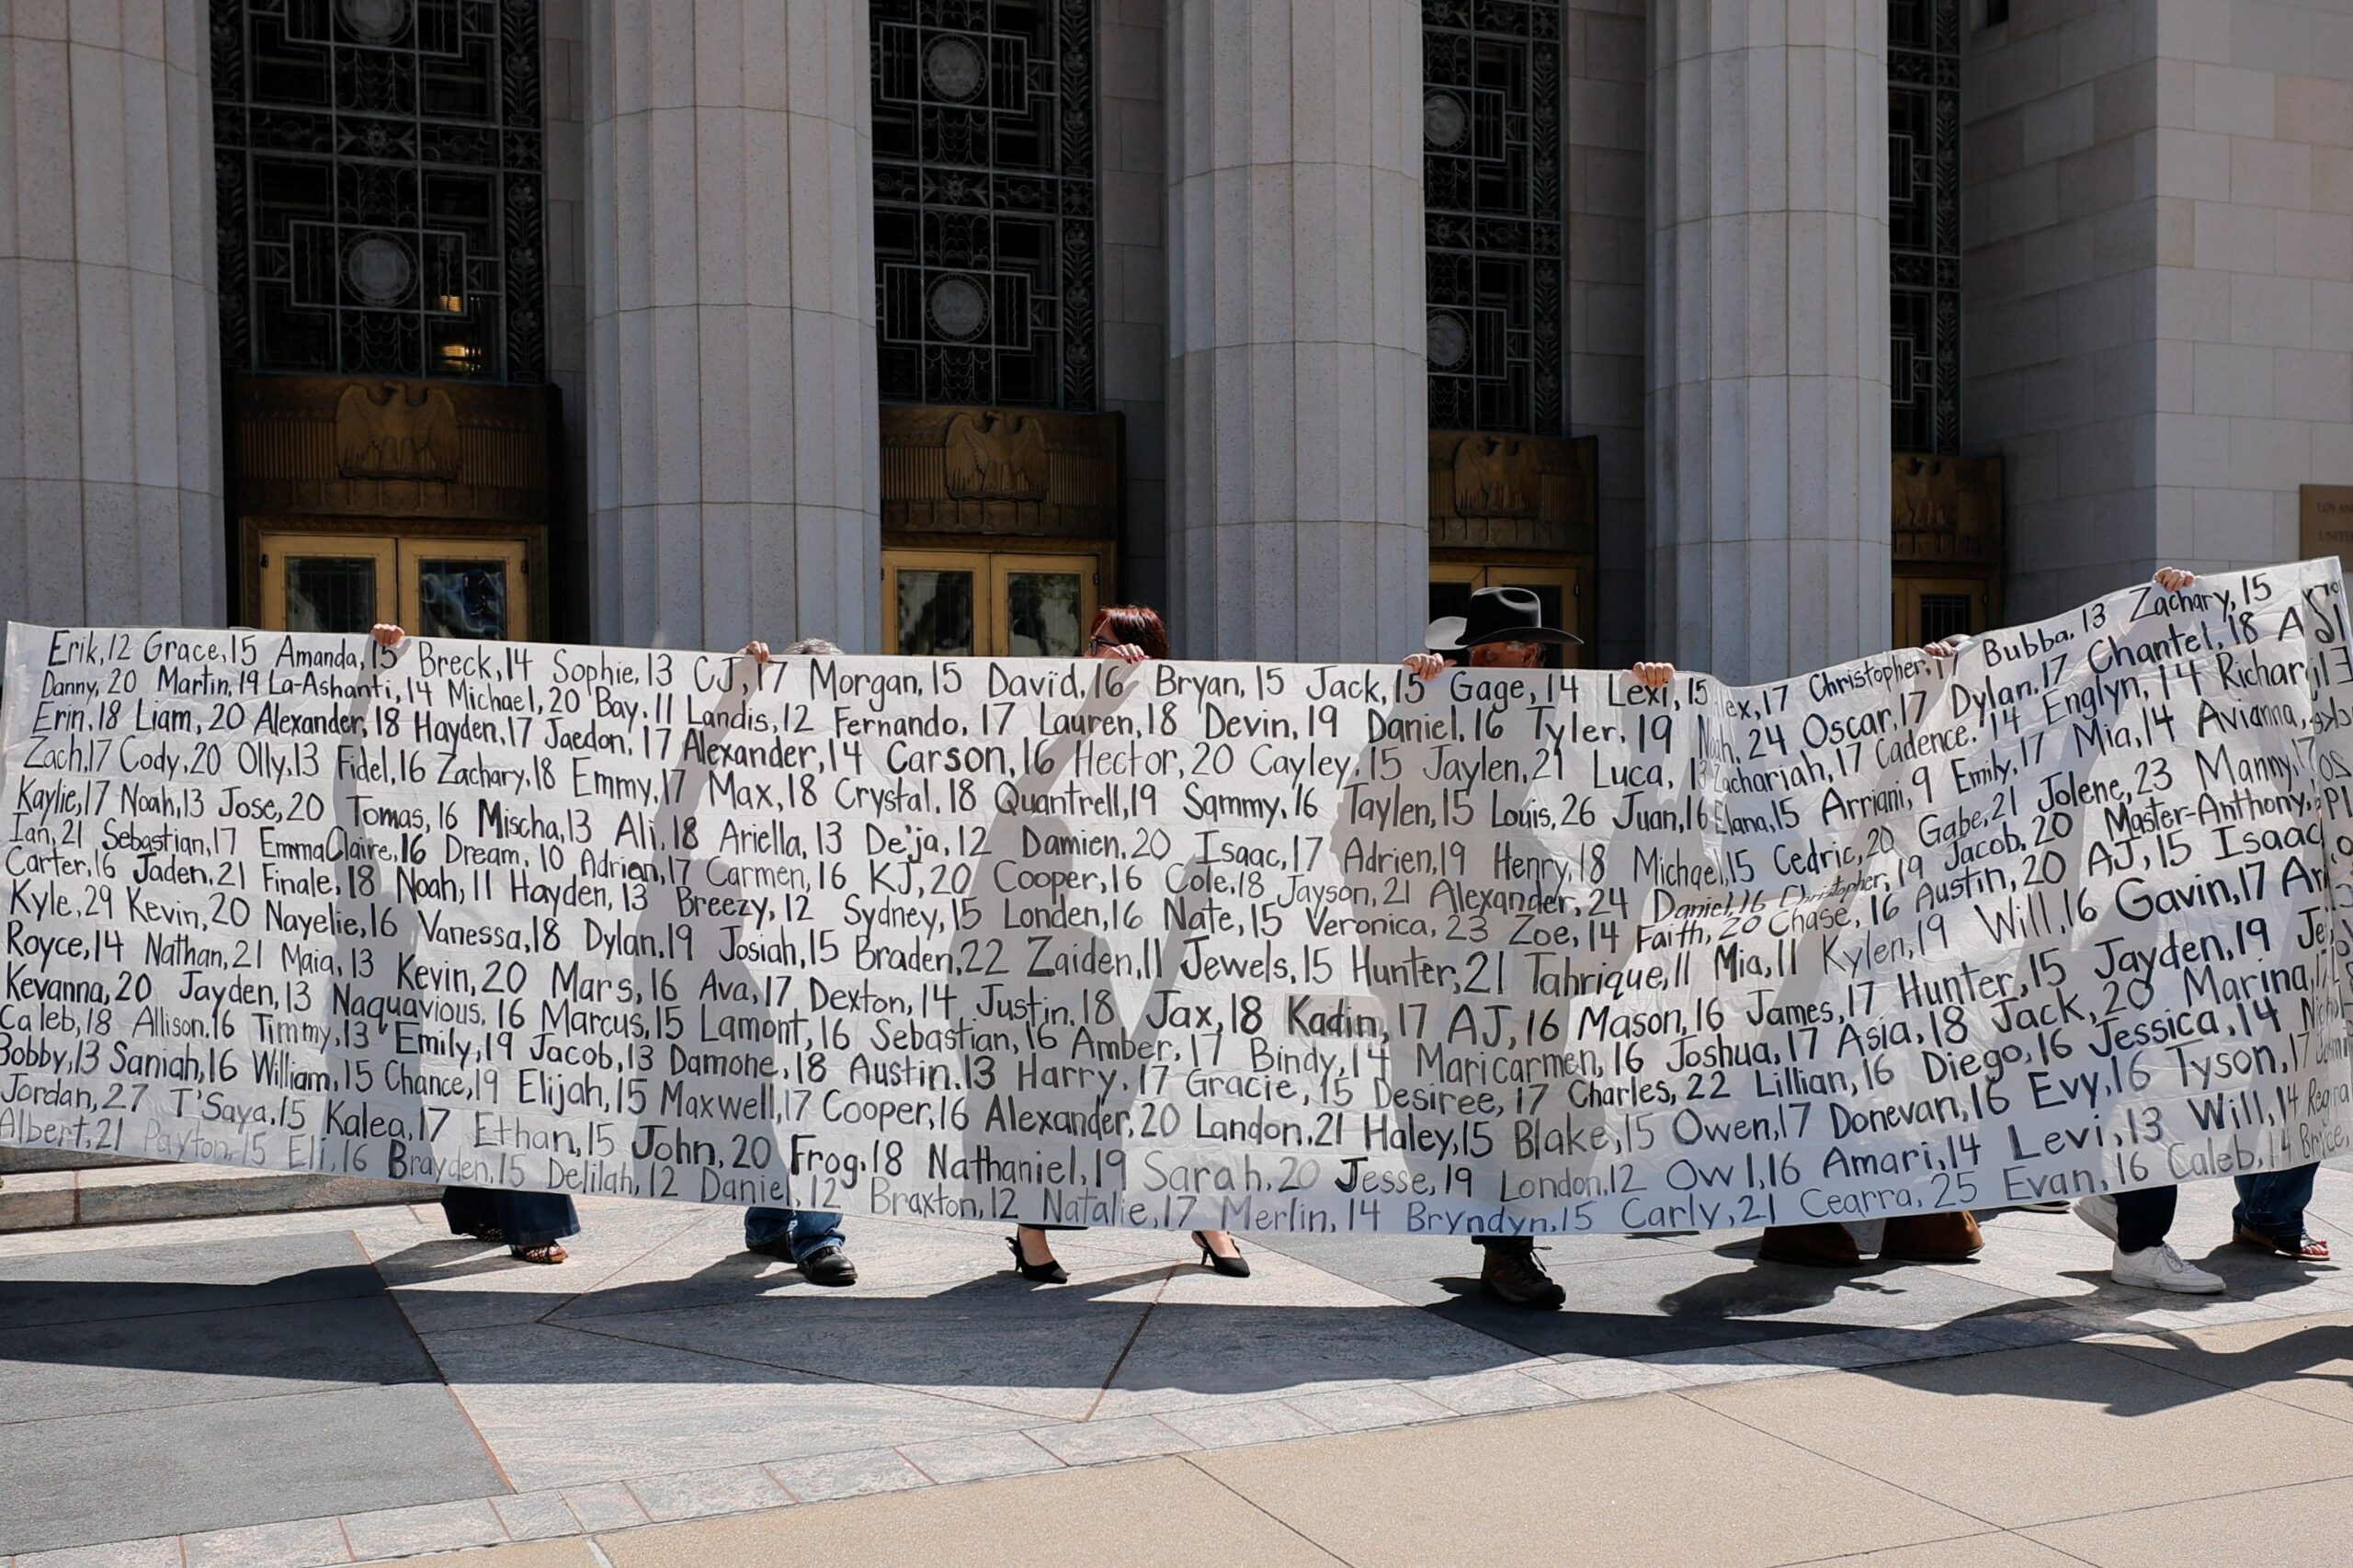 Erik,12 Grace,15 Amanda,15 Breck,14 Sophie,13 CJ,17 Morgan,15 David,16 Bryan,15 Jack,15 Gage,14 Lexi,15 Christopher,17 Bubba,13 Zachary,15
Danny,20 Martin,19 La-Ashanti,14 Michael,20 Bay,11 Landis,12 Fernando,17 Lauren,18 Devin,19 Daniel,16 Tyler,19 24 Oscar,17 Dylan,17 Chantel,18
Erin,18 Liam,20 Alexander,18 Hayden,17 Jaedon,17 Alexander,14 Carson,16 Hector,20 Cayley,15 Jaylen,21 Luca,13 Zachariah,17 Cadence,14 Englyn,14 Richar
Zach,17 Cody,20 Olly,13 Fidel,16 Zachary,18 Emmy,17 Max,18 Crystal,18 Quantrell,19 Sammy,16 Taylen,15 Louis,26 Juan,16 Elana,15 Arriani,9 Emily,17 Mia,14 Avianna,
Kaylie,17 Noah,13 Jose,20 Tomas,16 Mischa,13 Ali,18 Ariella,13 De'ja,12 Damien,20 Isaac,17 Adrien,19 Henry,18 Michael,15 Cedric,20 Gabe,21 Jolene,23 Manny,17
Ian,21 Sebastian,17 EmmaClaire,16 Dream,10 Adrien,17 Carmen,16 KJ,20 Cooper,16 Cole,18 Jayson,21 Alexander,24 Daniel,16 Christopher,19 Jacob,20 Master-Anthony,
Carter,16 Jaden,21 Finale,18 Noah,11 Hayden,13 Breezy,12 Sydney,15 Londen,16 Nate,15 Veronica,23 Zoe,14 Faith,20 Chase,16 Austin,20 AJ,15 Isaac
Kyle,29 Kevin,20 Nayelie,16 Vanessa,18 Dylan,19 Josiah,15 Braden,22 Zaiden,11 Jewels,15 Hunter,21 Tahrique,11 Mia,11 Kylen,19 Will,16 Gavin,17
Royce,14 Nathan,21 Maia,13 Kevin,20 Mars,16 Ava,17 Dexton,14 Justin,18 Jax,18 Kadin,17 AJ,16 Mason,16 James,17 Hunter,15 Jayden,19
Kevanna,20 Jayden,13 Naquavious,16 Marcus,15 Lamont,16 Sebastian,16 Amber,17 Bindy,14 Maricarmen,16 Joshua,17 Asia,18 Jack,20 Marina,17
Caleb,18 Allison,16 Timmy,13 Emily,19 Jacob,13 Damone,18 Austin,13 Harry,17 Gracie,15 Desiree,17 Charles,22 Lillian,16 Diego,16 Jessica,14
Bobby,13 Saniah,16 William,15 Chance,19 Elijah,15 Maxwell,17 Cooper,16 Alexander,20 Landon,21 Haley,15 Blake,15 Owen,17 Donevan,16 Evy,16 Tyson,17
Jordan,27 T'Saya,15 Kalea,17 Ethan,15 John,20 Frog,18 Nathaniel,19 Sarah,20 Jesse,19 London,12 Owl,16 Amari,14 Levi,13 Will,14
Albert,21 Payton,15 Eli,16 Brayden,15 Delilah,12 Daniel,12 Braxton,12 Natalie,17 Merlin,14 Bryndyn,15 Carly,21 Cearra,25 Evan,16 Caleb,14 Bryce,